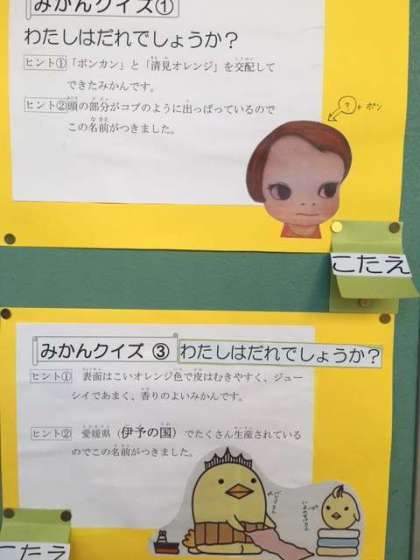 みかんクイズ①
わたしはだれでしょうか？
ヒント①「ポンカン」と「清見オレンジ」を交配して
できたみかんです。
ヒント②頭の部分がコブのように出っぱっているので
この名前がつきました。
？+ポン
こたえ
みかんクイズ ③ わたしはだれでしょうか？
ヒント① 表面はこいオレンジ色で皮はむきやすく、ジュー
シイであまく、香りのよいみかんです。
ヒント② 愛媛県（伊予の国）でたくさん生産されている
のでこの名前がつきました。
こたえ